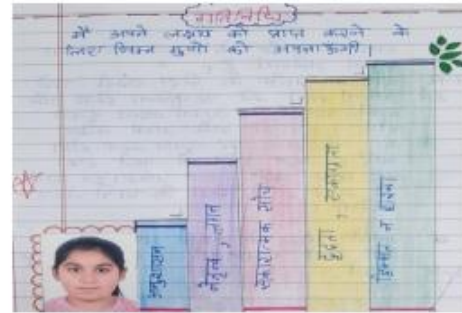 गतिविधि
मैं अपने लक्ष्य को प्राप्त करने के
लिए निम्न गुणों को अपनाऊंगी।
अनुशासन
नेतृत्व, लगन
सकारात्मक सोच
दृढ़ता, एकाग्रता
हिम्मत न हारना